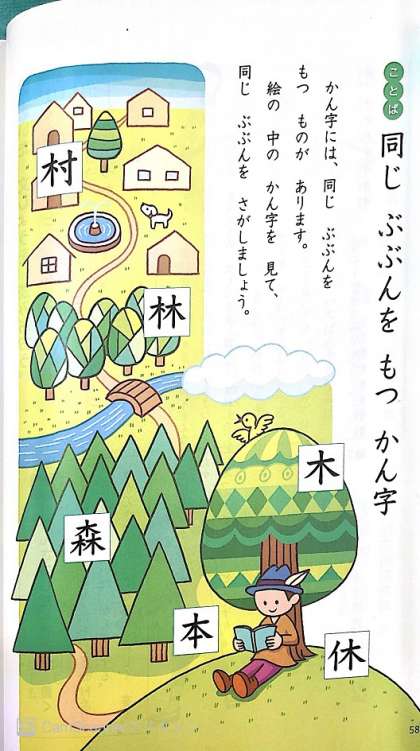 ことば
同じ ぶぶんを もつ かん字
かん字には、同じ ぶぶんを
もつ ものが あります。
絵の 中の かん字を 見て、
同じ ぶぶんを さがしましょう。
村
林
木
森
本
休
58